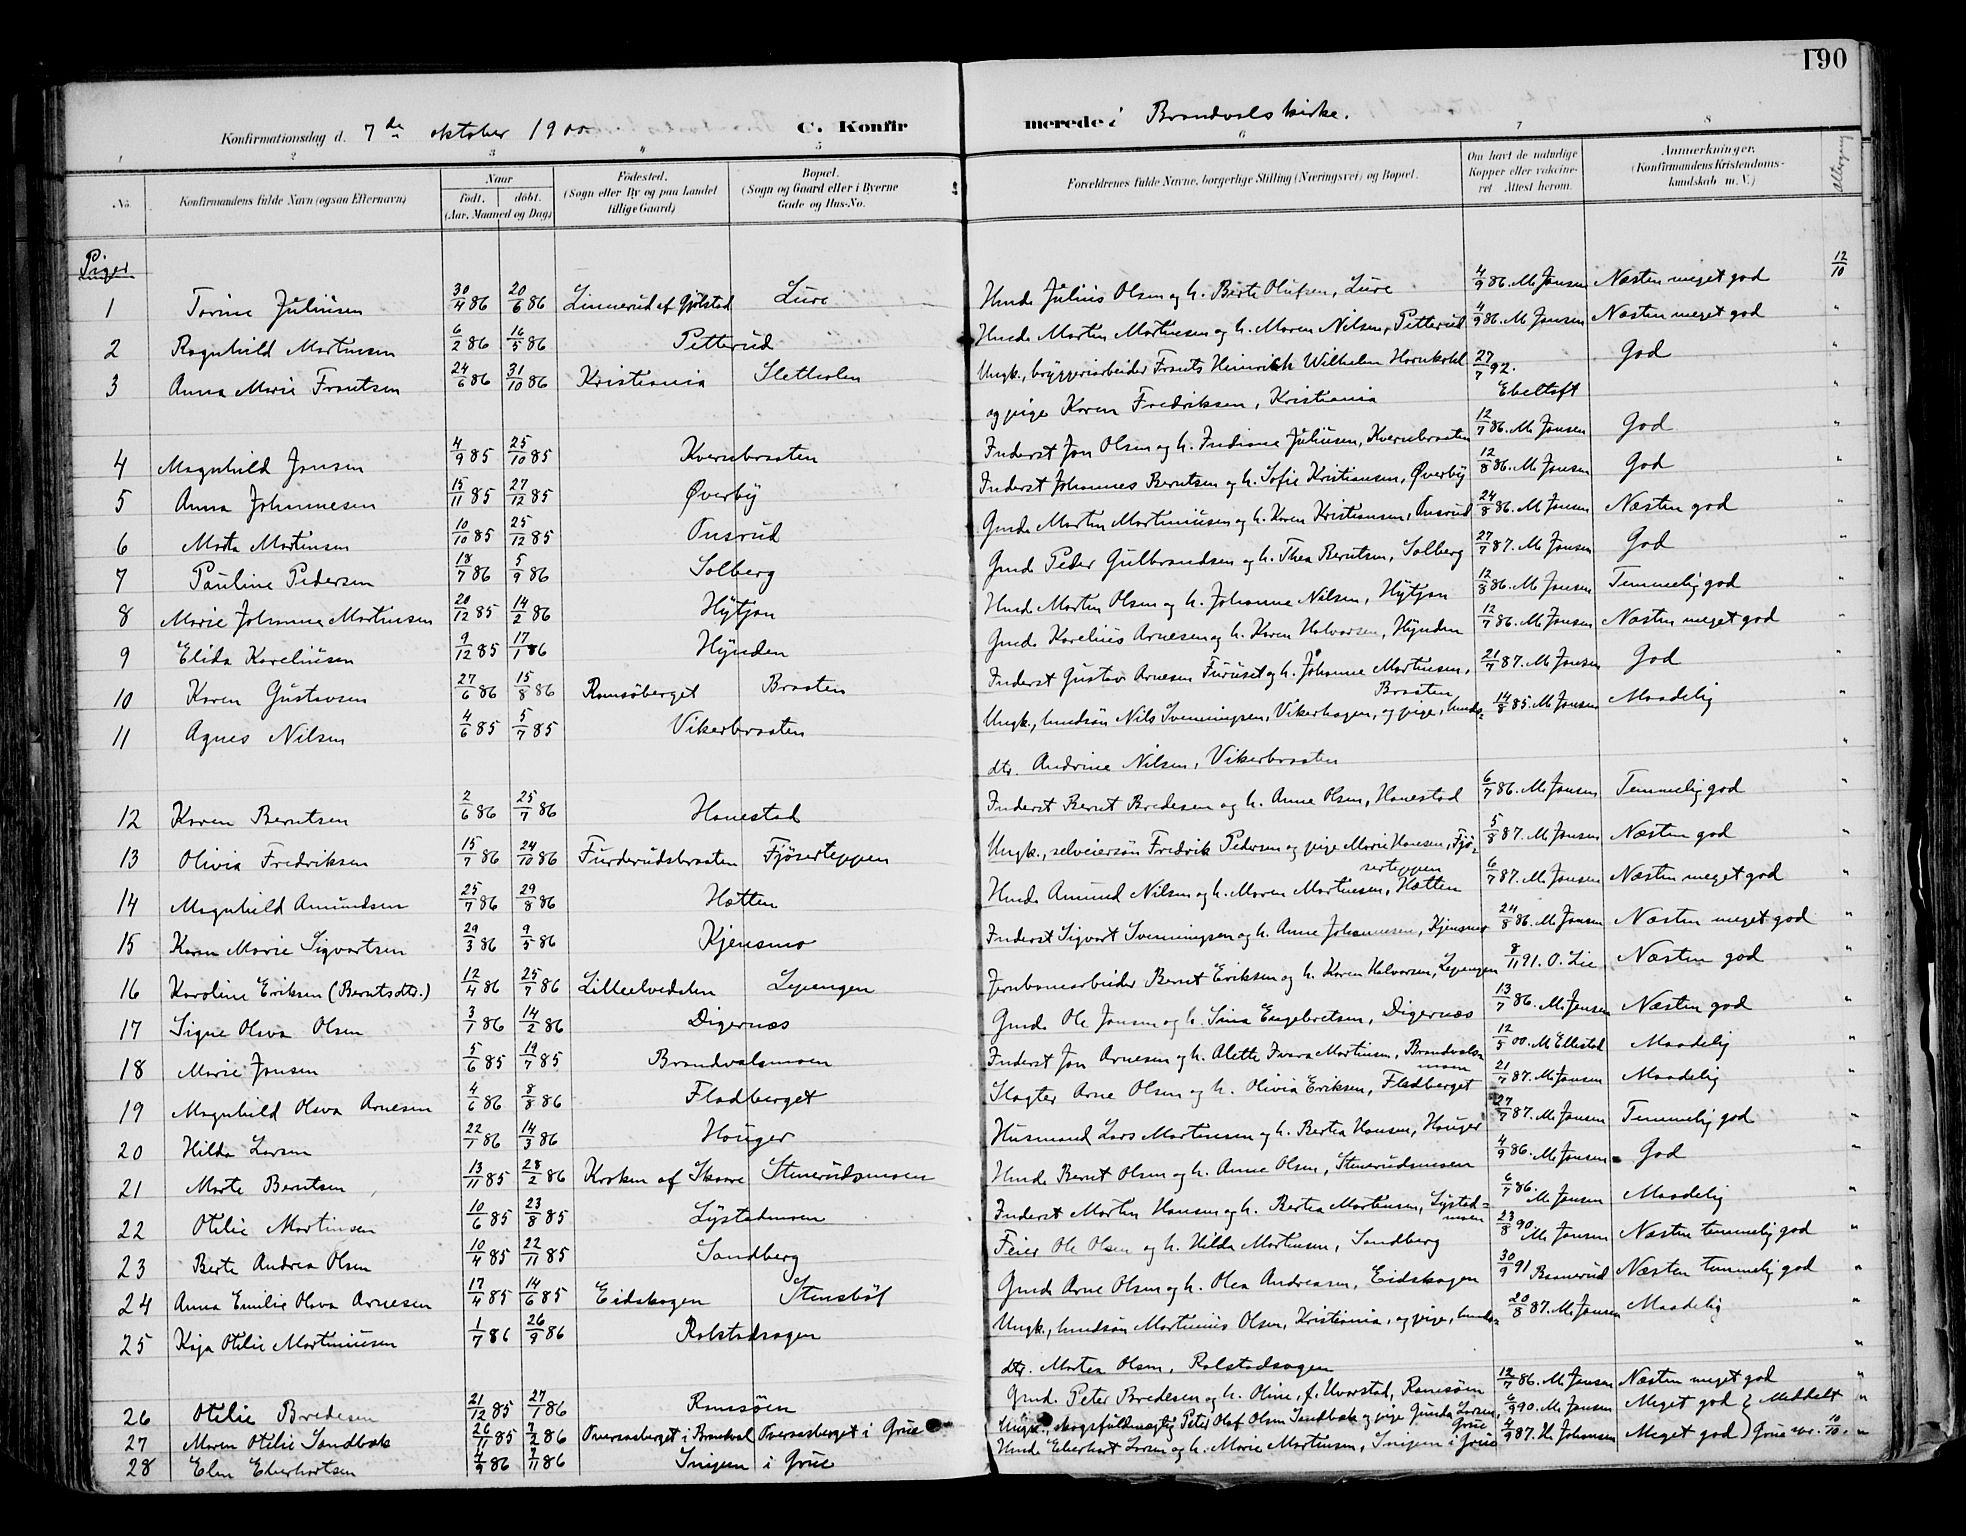 190
Konfirmationsdag d. 7de oktober 1900 C. Konfirmerede i Brandvals kirke.
1 2 3 4 5 6 7 8
No. Konfirmandens fulde Navn (ogsaa Efternavn) Naar født. døbt. (Aar, Maaned og Dag) Fødested. (Sogn eller By og paa Landet tillige Gaard) Bopæl. (Sogn og Gaard eller i Byerne Gade og Hus-No. Forældrenes fulde Navne, borgerlige Stilling (Næringsvei) og Bopæl. Om havt de naturlige Kopper eller vaccineret. Attest herom. Anmærkninger. (Konfirmandens Kristendomskundskab m. V.) altergang
Piger
1 Torine Juliusen 30/4 86 20/6 86 Linnerud af Gjølstad Lure Husmd. Julius Olsen og h. Berte Olufsen, Lure 4/9 86. M. Jansen Næsten meget god 12/10
2 Ragnhild Martinsen 6/2 86 16/5 86 Petterud Husmd. Martin Martinsen og h. Maren Nilsen, Petterud 4/9 86. M. Jansen Næsten meget god "
3 Anna Marie Frantsen 24/6 86 31/10 86 Kristiania Sletholen Ungk., bryggeriarbeider Frants Heinrich Wilhelm Hornkohl 27/7 92. God "
og pige Karen Fredriksen, Kristiania Ebeltoft "
4 Magnhild Jansen 4/9 85 25/10 85 Kvernbraaten Inderst Jon Olsen og h. Indiana Juliusen, Kvernbraaten 12/7 86. M. Jansen God "
5 Anna Johannesen 15/11 85 27/12 85 Øverby Inderst Johannes Berntsen og h. Sofie Kristiansen, Øverby 12/8 86. M. Jansen God "
6 Marta Martinsen 10/10 85 25/12 85 Onsrud Gmd. Martin Martiniusen og h. Karen Kristiansen, Onsrud 24/8 86. M. Jansen Næsten god "
7 Pauline Pedersen 18/7 86 5/9 86 Solberg Gmd. Peder Gulbrandsen og h. Thea Berntsen, Solberg 27/7 87. M. Jansen God "
8 Marie Johanna Martinsen 20/12 85 14/2 86 Hytjan Husmd. Martin Olsen og h. Johanna Nilsen, Hytjan 12/8 86. M. Jansen Temmelig god "
9 Elida Kareliusen 9/12 85 17/1 86 Hynden Gmd. Karelius Arnesen og h. Karen Halvorsen, Hynden 12/7 86. M. Jansen Næsten meget god "
10 Karen Gustavsen 27/6 86 15/8 86 Ramsøberget Braaten Inderst Gustav Arnesen Furuset og h. Johanne Martinsen, 21/7 87. M. Jansen God "
Braaten
11 Agnes Nilsen 4/6 85 5/7 85 Vikerbraaten Ungk., husmdsøn Nils Svenningsen, Vikerhagen, og pige, husmds= 14/8 85. M. Jansen Maadelig "
dtr. Andrine Nilsen, Vikerbraaten "
12 Karen Berntsen 2/6 86 25/7 86 Hanestad Inderst Bernt Bredesen og h. Anne Olsen, Hanestad 6/7 86. M. Jansen Temmelig god "
13 Olivia Fredriksen 15/7 86 24/10 86 Furderudsbraaten Fjøserteppen Ungk., selveiersøn Fredrik Pedersen og pige Marie Hansen, Fjø= 5/8 87. M. Jansen Næsten god "
serteppen
14 Magnhild Amundsen 25/7 86 29/8 86 Hatten Husmd. Amund Nilsen og h. Maren Martinsen, Hatten 6/7 87. M. Jansen Næsten meget god "
15 Karen Marie Sigvartsen 29/3 86 9/5 86 Kjensmo Inderst Sigvart Svenningsen og h. Anne Johannesen, Kjensmo 24/8 86. M. Jansen Næsten meget god "
16 Karoline Eriksen (Berntsdtr.) 12/4 86 25/7 86 Lilleelvedalen Lyengen Jernbanearbeider Bernt Eriksen og h. Karen Halvorsen, Lyengen 8/11 91. O. Lie Næsten god "
17 Signe Olava Olsen 3/1 86 14/2 86 Digernæs Gmd. Ole Jansen og h. Sina Engebretsen, Digernæs 13/7 86. M. Jansen Næsten god "
18 Marie Jansen 5/6 85 19/7 85 Brandvalsmoen Inderst Jon Arnesen og h. Alette Ivara Martinsen, Brandvals= 12/5 00. M Ellestad Maadelig "
moen
19 Magnhild Olava Arnesen 4/6 86 8/8 86 Fladberget Slagter Arne Olsen og h. Olivia Eriksen, Fladberget 21/7 87. M. Jansen Maadelig "
20 Hilda Larsen 22/1 86 14/3 86 Houger Husmand Lars Martinsen og h. Bertea Hansen, Houger 27/7 87. M. Jansen Temmelig god "
21 Marte Berntsen 13/11 85 28/2 86 Kroken af Skaare Stenerudsmoen Husmd. Bernt Olsen og h. Anne Olsen, Stenerudsmoen 4/9 86. M. Jansen God "
22 Otilie Martinsen 10/6 85 23/8 85 Lystadmoen Inderst Martin Hansen og h. Bertea Martinsen, Lystad= 6/7 86. M. Jansen Maadelig "
moen
23 Berte Andrea Olsen 10/4 85 22/11 85 Sandberg Feier Ole Olsen og h. Hilda Martinsen, Sandberg 23/8 90 M. Jansen Næsten temmelig god "
24 Anna Emilie Olava Arnesen 17/4 85 14/6 85 Eidskogen Stensbøl Gmd. Arne Olsen og h. Olea Andreasen, Eidskogen 30/9 91 Baanerud Næsten temmelig god "
25 Kaja Otilie Martiniusen 1/7 86 26/9 86 Rolstadsagen Ungk., husmdsøn Martinius Olsen, Kristiania, og pige, husmds= 20/8 87. M. Jansen Maadelig "
dtr. Martea Olsen, Rolstadsagen "
26 Otilie Bredesen 21/12 85 27/1 86 Ramsøen Gmd. Peter Bredesen og h. Oline, f. Hvarstad, Ramsøen 12/7 86. M. Jansen Næsten meget god "
27 Maren Otilie Sandbæk 26/11 85 7/2 86 Oversæsberget i Brandval Oversæsberget i Grue Ungk., skogsfuldmægtig Peter Olaf Olsen Sandbæk og pige Gunda Larsen, Grue 6/9 90. M. Jansen Meget god } Meddelt "
28 Elen Eberhartsen 4/9 86 7/11 86 Snipen i Grue Husmd. Eberhart Larsen og h. Marie Martinsen, Snipen i Grue 4/9 87. H. Johansen Meget god } Grue 10/10. "